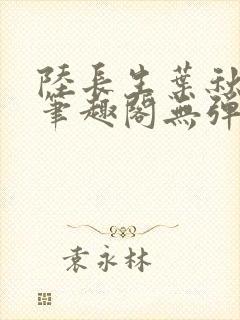 陸長生葉秋
筆趣閣無彈
袁永林